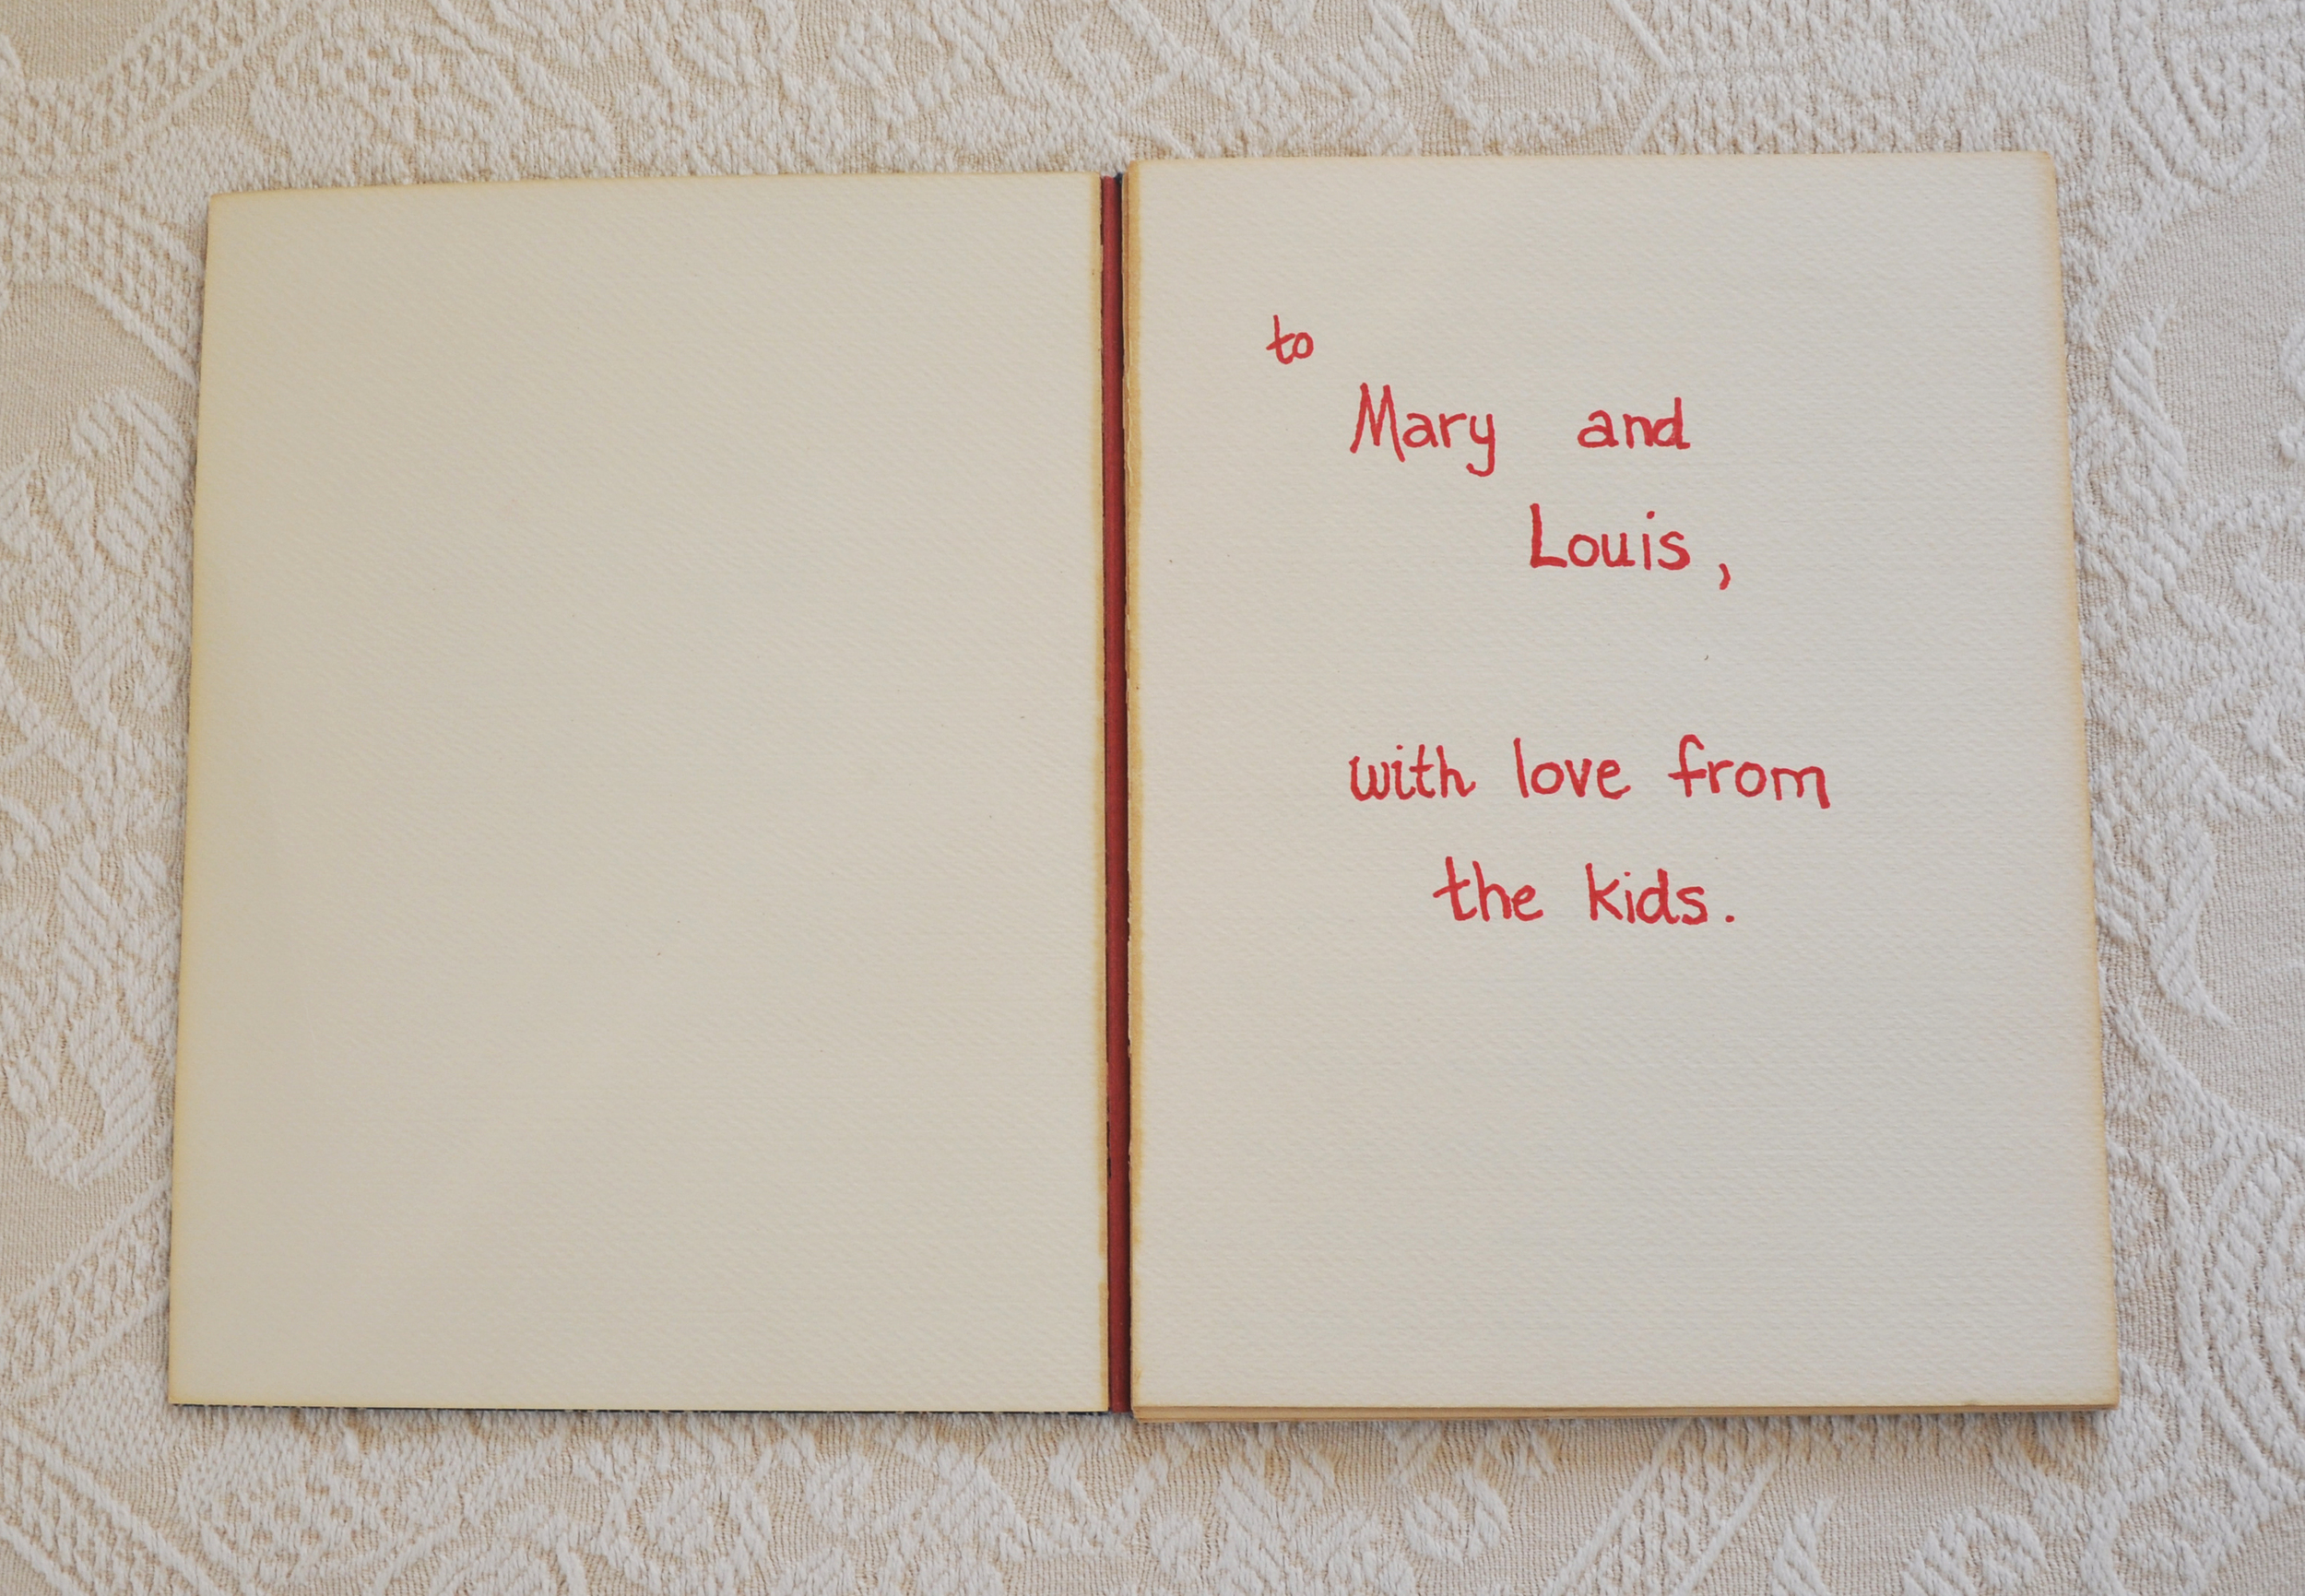 to
Mary and
Louis,
with love from
the kids.